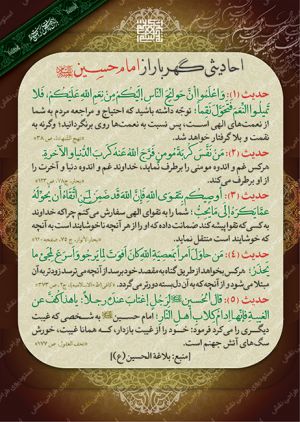 احادیثی گهربار از امام حسین
حدیث (۱): وَاعْلَمُوا أَنَّ حَوَائِجَ النَّاسِ إِلَيْكُمْ مِنْ نِعَمِ اللهِ عَلَيْكُمْ، فَلَا
تَمِيلُوا النِّعَمَ فَتَحُولَ نِقَماً؛ توجّه داشته باشید که احتیاج و مراجعه مردم به شما
از نعمت‌های الهی است، پس نسبت به نعمت‌ها روی برنگردانید؛ وگرنه به
نقمت و بلا گرفتار خواهد شد.
حدیث (۲): مَنْ نَفَّسَ كُرْبَةَ مُؤْمِنٍ فَرَّجَ اللهُ عَنْهُ كَرْبَ الدُّنْيَا وَالْآخِرَةِ.
هرکس غم و اندوه مومنی را برطرف نماید، خداوند غم و اندوه دنیا و آخرت را
از او برطرف می‌کند.
حدیث (۳): أُوصِيكُمْ بِتَقْوَى اللهِ فَإِنَّ اللهَ قَدْ ضَمِنَ لِمَنِ اتَّقَاهُ أَنْ يُحَوِّلَهُ
عَمَّا يَكْرَهُ إِلَى مَا يُحِبُّ؛ شما را به تقوای الهی سفارش می‌کنم چراکه خداوند
به کسی که تقوا پیشه کند ضمانت داده که او را از هر آنچه ناخوشایند است به آنچه
که خوشایند است منتقل نماید.
حدیث (۴): مَنْ حَاوَلَ أَمْراً بِمَعْصِيَةِ اللهِ كَانَ أَفْوَتَ لِمَا يَرْجُو وَأَسْرَعَ لِمَجِيءِ مَا
يَحْذَرُ؛ هرکس بخواهد از طریق گناه به مقصد خود برسد از آنچه می‌ترسد زودتر به آن
مبتلا می‌شود و از آنچه که به آن دل بسته دورتر می‌گردد.
حدیث (۵): قَالَ الْحُسَيْنُ لِرَجُلٍ اغْتَابَ عِنْدَهُ رَجُلاً: يَا هَذَا كُفَّ عَنِ
الْغِيبَةِ فَإِنَّهَا إِدَامُ كِلَابِ أَهْلِ النَّارِ؛ امام حسین به شخصی که غیبت
دیگری را می‌کرد فرمود: خود را از غیبت بازدار، که همانا غیبت، خورش
سگ‌های آتش جهنم است.
[منبع: بلاغة الحسين (ع)]